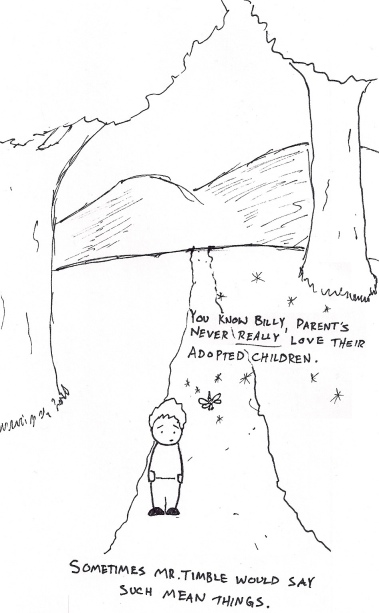 YOU KNOW BILLY, PARENT'S
NEVER REALLY LOVE THEIR
ADOPTED CHILDREN.
SOMETIMES MR. TIMBLE WOULD SAY
SUCH MEAN THINGS.